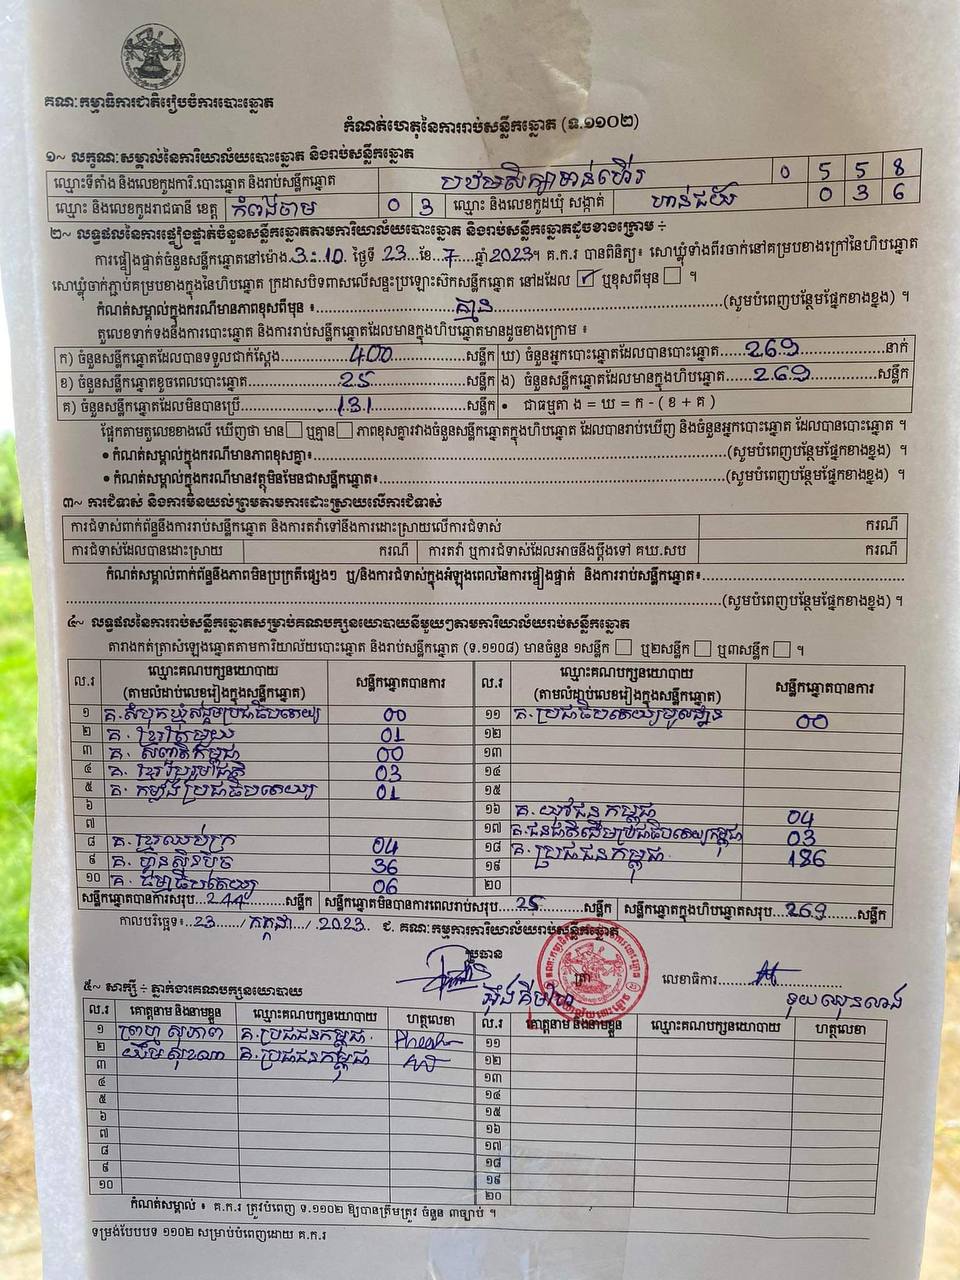 គណៈកម្មាធិការជាតិរៀបចំការបោះឆ្នោត
កំណត់ហេតុនៃការរាប់សន្លឹកឆ្នោត (ទ.១១០២)
១~ លក្ខណៈសម្គាល់នៃការិយាល័យបោះឆ្នោត និងរាប់សន្លឹកឆ្នោត
ឈ្មោះទីតាំង និងលេខកូដការិ.បោះឆ្នោត និងរាប់សន្លឹកឆ្នោត បឋមសិក្សាទន់ហើរ 0 5 5 8
ឈ្មោះ និងលេខកូដរាជធានី ខេត្ត កំពង់ចាម 0 3 ឈ្មោះ និងលេខកូដឃុំ សង្កាត់ ហាន់ជ័យ 0 3 6
២~ លទ្ធផលនៃការផ្ទៀងផ្ទាត់ចំនួនសន្លឹកឆ្នោតតាមការិយាល័យបោះឆ្នោត និងរាប់សន្លឹកឆ្នោតដូចខាងក្រោម ÷
ការផ្ទៀងផ្ទាត់ចំនួនសន្លឹកឆ្នោតនៅម៉ោង 3:10 ថ្ងៃទី 23 ខែ 7 ឆ្នាំ 2023។ គ.ក.រ បានពិនិត្យ៖ សោឃ្លុំទាំងពីរចាក់នៅគម្របខាងក្រៅនៃហិបឆ្នោត
សោឃ្លុំចាក់ភ្ជាប់គម្របខាងក្នុងនៃហិបឆ្នោត ក្រដាសបិទពាសលើសន្ទះប្រឡោះស៊កសន្លឹកឆ្នោត នៅដដែល ☑ ឬខុសពីមុន ☐ ។
កំណត់សម្គាល់ក្នុងករណីមានភាពខុសពីមុន ៖ គ្មាន (សូមបំពេញបន្ថែមផ្នែកខាងខ្នង) ។
តួលេខទាក់ទងនឹងការបោះឆ្នោត និងការរាប់សន្លឹកឆ្នោតដែលមានក្នុងហិបឆ្នោតមានដូចខាងក្រោម ៖
ក) ចំនួនសន្លឹកឆ្នោតដែលបានទទួលជាក់ស្តែង 400 សន្លឹក ឃ) ចំនួនអ្នកបោះឆ្នោតដែលបានបោះឆ្នោត 269 នាក់
ខ) ចំនួនសន្លឹកឆ្នោតខូចពេលបោះឆ្នោត 25 សន្លឹក ង) ចំនួនសន្លឹកឆ្នោតដែលមានក្នុងហិបឆ្នោត 269 សន្លឹក
គ) ចំនួនសន្លឹកឆ្នោតដែលមិនបានប្រើ 131 សន្លឹក • ជាធម្មតា ង = ឃ = ក - ( ខ + គ )
ផ្អែកតាមតួលេខខាងលើ ឃើញថា មាន ☐ ឬគ្មាន ☐ ភាពខុសគ្នារវាងចំនួនសន្លឹកឆ្នោតក្នុងហិបឆ្នោត ដែលបានរាប់ឃើញ និងចំនួនអ្នកបោះឆ្នោត ដែលបានបោះឆ្នោត ។
• កំណត់សម្គាល់ក្នុងករណីមានភាពខុសគ្នា៖ (សូមបំពេញបន្ថែមផ្នែកខាងខ្នង) ។
• កំណត់សម្គាល់ក្នុងករណីមានវត្ថុមិនមែនជាសន្លឹកឆ្នោត៖ (សូមបំពេញបន្ថែមផ្នែកខាងខ្នង) ។
៣~ ការជំទាស់ និងការមិនយល់ព្រមតាមការដោះស្រាយលើការជំទាស់
ការជំទាស់ពាក់ព័ន្ធនឹងការរាប់សន្លឹកឆ្នោត និងការតវ៉ាទៅនឹងការដោះស្រាយលើការជំទាស់ ករណី
ការជំទាស់ដែលបានដោះស្រាយ ករណី ការតវ៉ា ឬការជំទាស់ដែលអាចនឹងប្តឹងទៅ គឃ.សប ករណី
កំណត់សម្គាល់ពាក់ព័ន្ធនឹងភាពមិនប្រក្រតីផ្សេងៗ ឬ/និងការជំទាស់ក្នុងអំឡុងពេលនៃការផ្ទៀងផ្ទាត់ និងការរាប់សន្លឹកឆ្នោត៖
(សូមបំពេញបន្ថែមផ្នែកខាងខ្នង) ។
៤~ លទ្ធផលនៃការរាប់សន្លឹកឆ្នោតសម្រាប់គណបក្សនយោបាយនីមួយៗតាមការិយាល័យរាប់សន្លឹកឆ្នោត
តារាងកត់ត្រាសំឡេងឆ្នោតតាមការិយាល័យបោះឆ្នោត និងរាប់សន្លឹកឆ្នោត (ទ.១១០៨) មានចំនួន ១សន្លឹក ☐ ឬ២សន្លឹក ☐ ឬ៣សន្លឹក ☐ ។
ល.រ ឈ្មោះគណបក្សនយោបាយ (តាមលំដាប់លេខរៀងក្នុងសន្លឹកឆ្នោត) សន្លឹកឆ្នោតបានការ ល.រ ឈ្មោះគណបក្សនយោបាយ (តាមលំដាប់លេខរៀងក្នុងសន្លឹកឆ្នោត) សន្លឹកឆ្នោតបានការ
១ គ.សំបុកឃ្មុំសង្គមប្រជាធិបតេយ្យ 00 ១១ គ.ប្រជាធិបតេយ្យមូលដ្ឋាន 00
២ គ. ខ្មែរតែមួយ 01 ១២
៣ គ. សញ្ជាតិកម្ពុជា 00 ១៣
៤ គ. ខ្មែររួបរួមជាតិ 03 ១៤
៥ គ. កម្លាំងប្រជាធិបតេយ្យ 01 ១៥
៦ ១៦ គ. យុវជនកម្ពុជា 04
៧ ១៧ គ.ជនជាតិដើមប្រជាធិបតេយ្យកម្ពុជា 03
៨ គ. ខ្មែរឈប់ក្រ 04 ១៨ គ. ប្រជាជនកម្ពុជា 186
៩ គ. ហ្វ៊ុនស៊ិនប៉ិច 36 ១៩
១០ គ. ធម្មាធិបតេយ្យ 06 ២០
សន្លឹកឆ្នោតបានការសរុប 244 សន្លឹក សន្លឹកឆ្នោតមិនបានការពេលរាប់សរុប 25 សន្លឹក សន្លឹកឆ្នោតក្នុងហិបឆ្នោតសរុប 269 សន្លឹក
កាលបរិច្ឆេទ៖ 23 / កក្កដា / 2023 ជ. គណៈកម្មការការិយាល័យរាប់សន្លឹកឆ្នោត
ប្រធាន
ត្រា លេខាធិការ
៥~ សាក្សី ÷ ភ្នាក់ងារគណបក្សនយោបាយ
ល.រ គោត្តនាម និងនាមខ្លួន ឈ្មោះគណបក្សនយោបាយ ហត្ថលេខា ល.រ គោត្តនាម និងនាមខ្លួន ឈ្មោះគណបក្សនយោបាយ ហត្ថលេខា
១ ព្រហ្ម សុភាព គ.ប្រជាជនកម្ពុជា ១១
២ យ៉ឹម សុខណា គ.ប្រជាជនកម្ពុជា ១២
៣ ១៣
៤ ១៤
៥ ១៥
៦ ១៦
៧ ១៧
៨ ១៨
៩ ១៩
១០ ២០
កំណត់សម្គាល់ ៖ គ.ក.រ ត្រូវបំពេញ ទ.១១០២ ឱ្យបានត្រឹមត្រូវ ចំនួន ៣ច្បាប់ ។
ទម្រង់បែបបទ ១១០២ សម្រាប់បំពេញដោយ គ.ក.រ